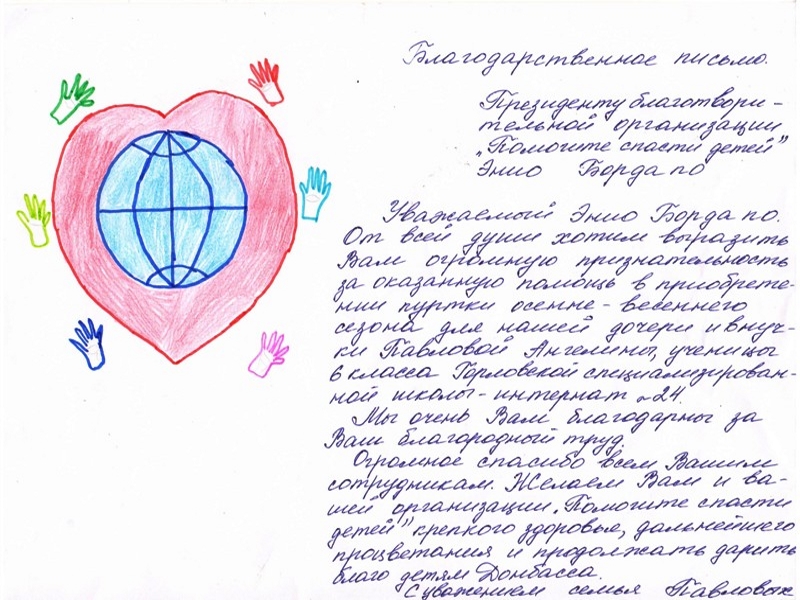 Благодарственное письмо.
Президенту благотвори-
тельной организации
„Помогите спасти детей"
Энио Борда по
Уважаемый Энио Борда по.
От всей души хотим выразить
Вам огромную признательность
за оказанную помощь в приобрете-
нии пуртки осенне-весеннего
сезона для нашей дочери и внуч-
ки Павловой Ангелины, ученицы
6 класса Горловской специализирован-
ной школы-интернат №24.
Мы очень Вам благодарны за
Ваш благородный труд.
Огромное спасибо всем Вашим
сотрудникам. Желаем Вам и ва-
шей организации „Помогите спасти
детей" крепкого здоровья, дальнейшего
процветания и продолжать дарить
благо детям Донбасса.
С уважением семья Павловых